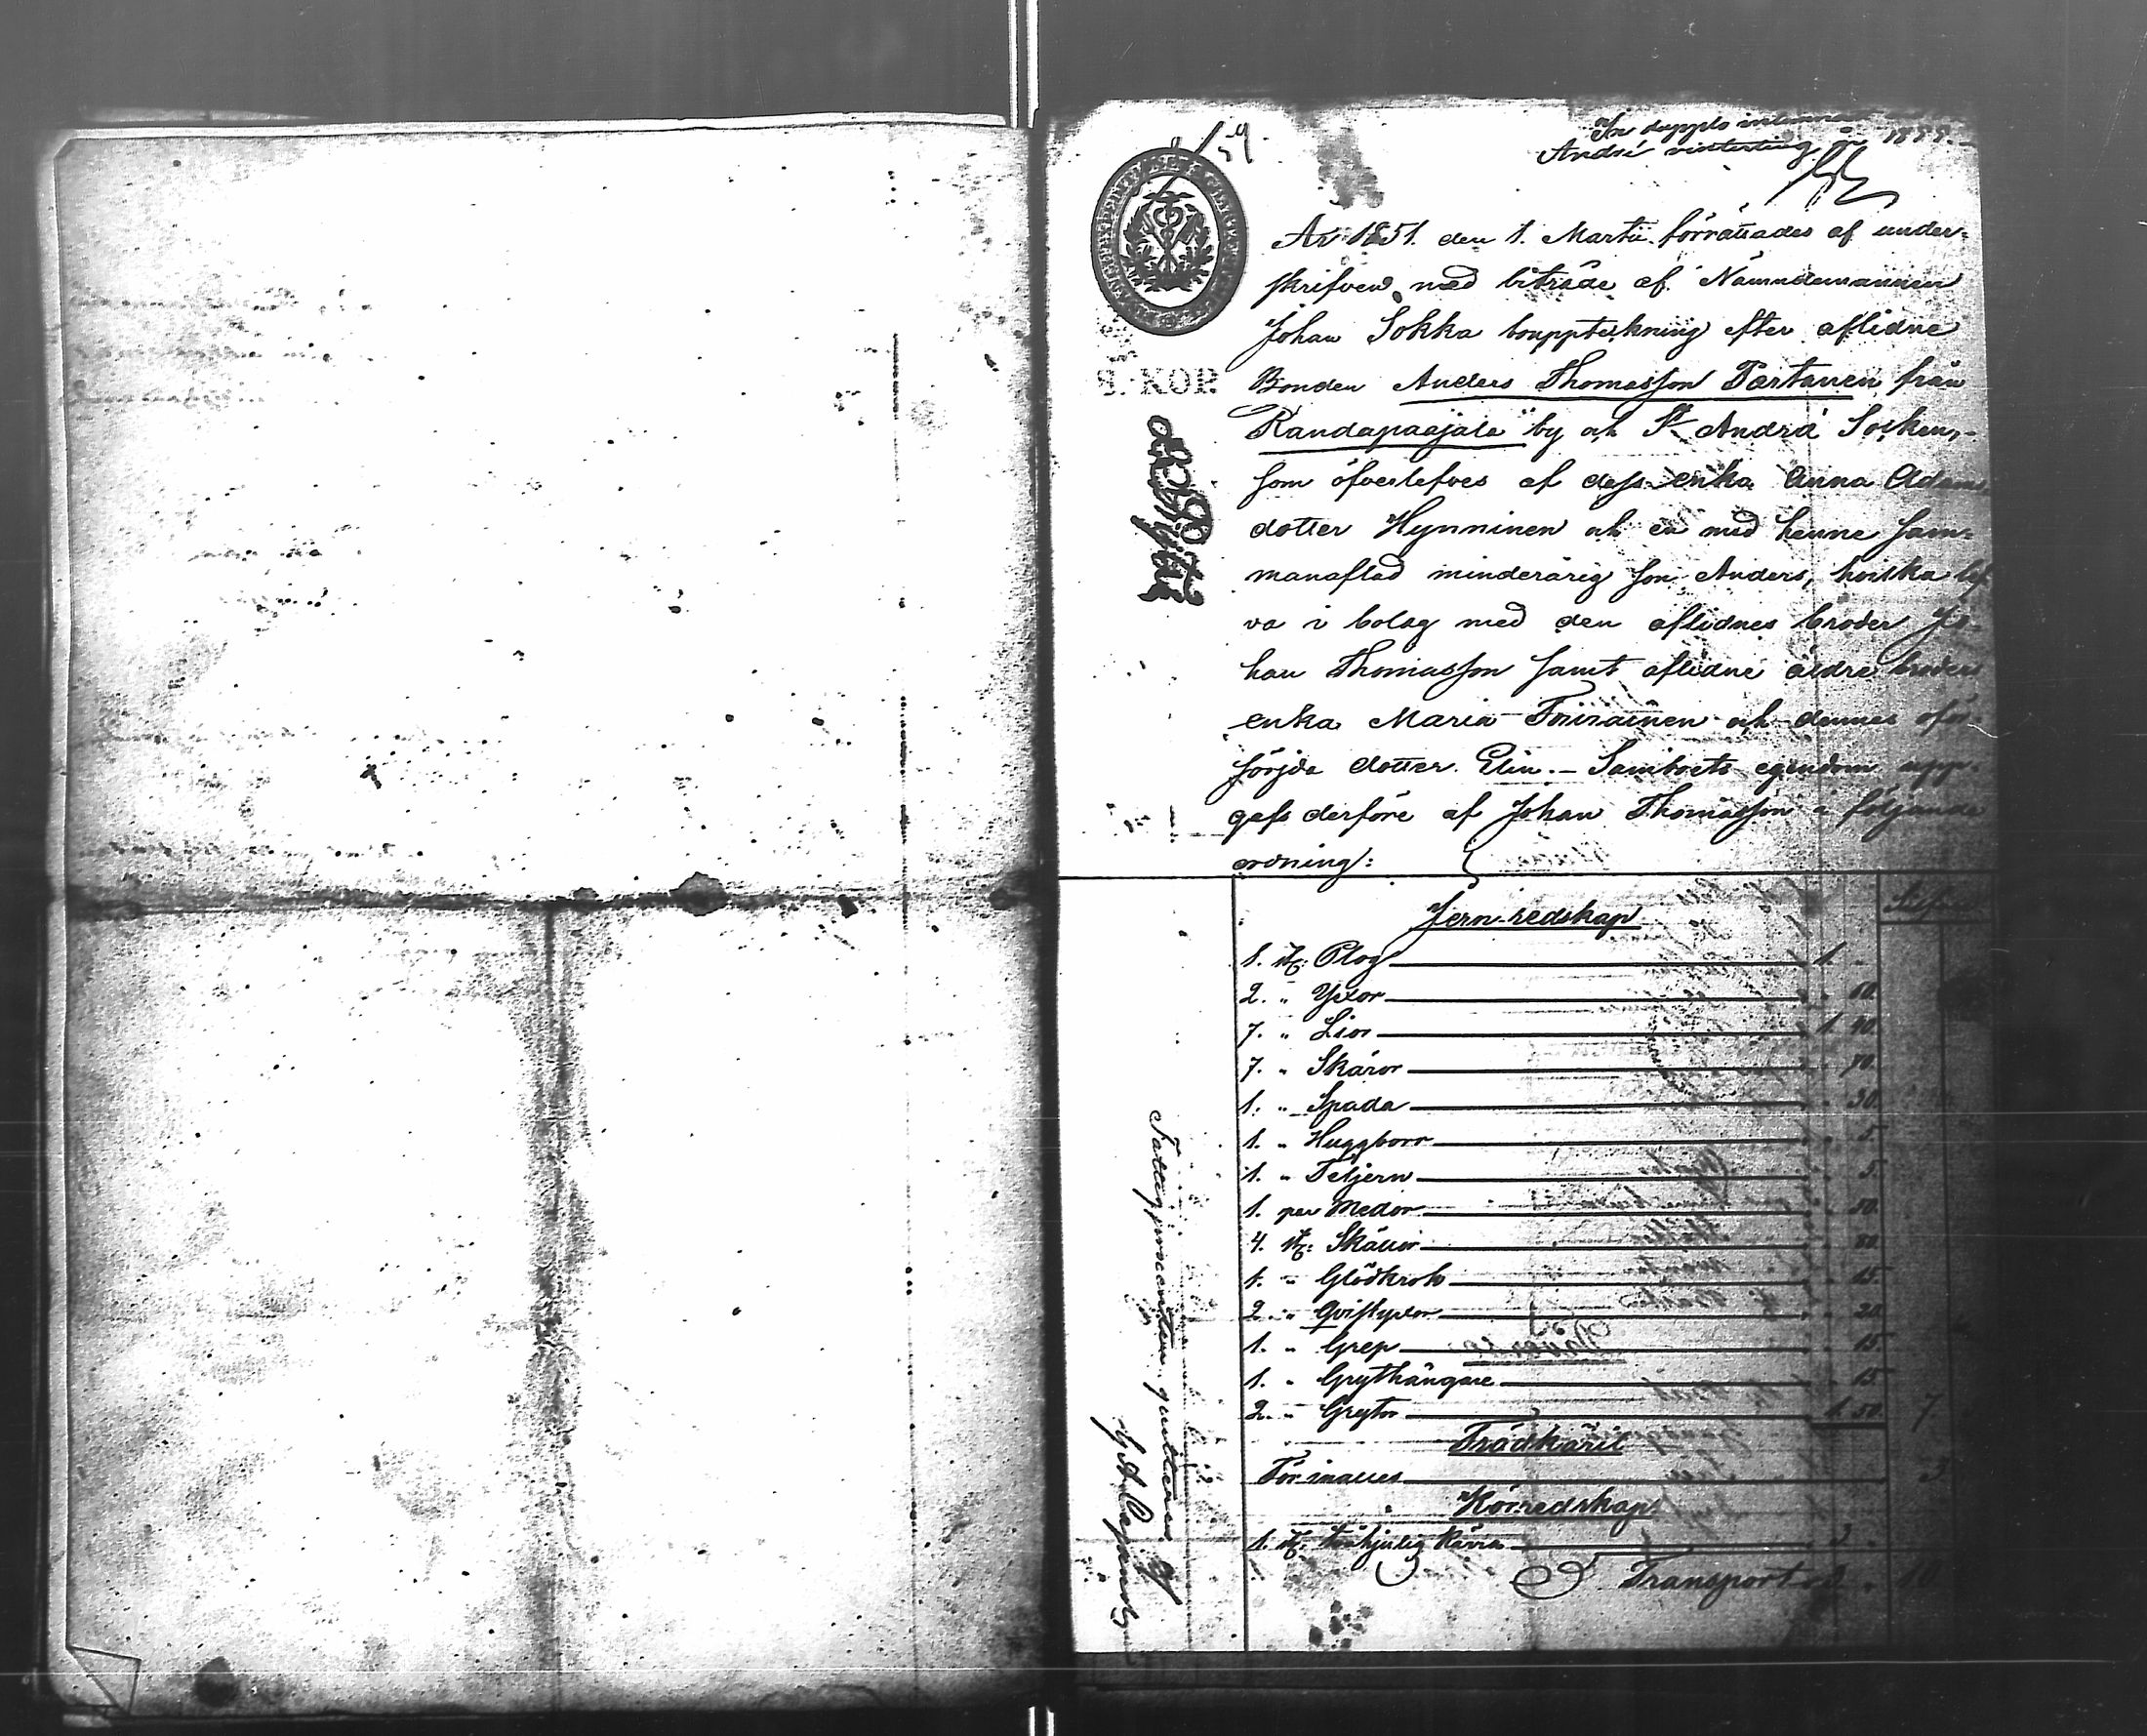 In duplo
André vinterting år 1877.
År 1851. den 1. Martii förrättades af under-
skrifven med biträde af Nämndemannen
Johan Sokka bouppteckning efter aflidne
Bonden Anders Thomasson Partanen från
Kandapaajala by och St Andrä Socken,
som öfverlefves af dess enka Anna Adams
dotter Hynninen och en med henne sam-
manaflad minderårig son Anders, hvilka lef
va i bolag med den aflidnes broder Jo-
han Thomasson samt aflidne äldre broders
enka Maria Toiviainen och dennes oför
sörjda dotter Elin. – Samboets egendom upp-
gafs derföre af Johan Thomasson i följande
ordning:
Silfver
Jern-redskap
1. st: Plog 1. "
2. " Yxor " 60.
7. " Lior 1. 40.
7. " Skäror " 70.
1. " Spada " 30.
1. " Huggborr " 5.
1. " Teljern " 5.
1. par Medor " 50.
4. st: Skällor " 80.
1. " Glödkrok " 15.
2. " Qvistyxor " 20.
1. " Grep " 15
1. " Grythängare " 15
2. " Grytor 1. 50. 7
Trädkäril
För inalles 3
Körredskap
1. st: tvåhjulig kärra 3
Transport 3 " 10
KOP.